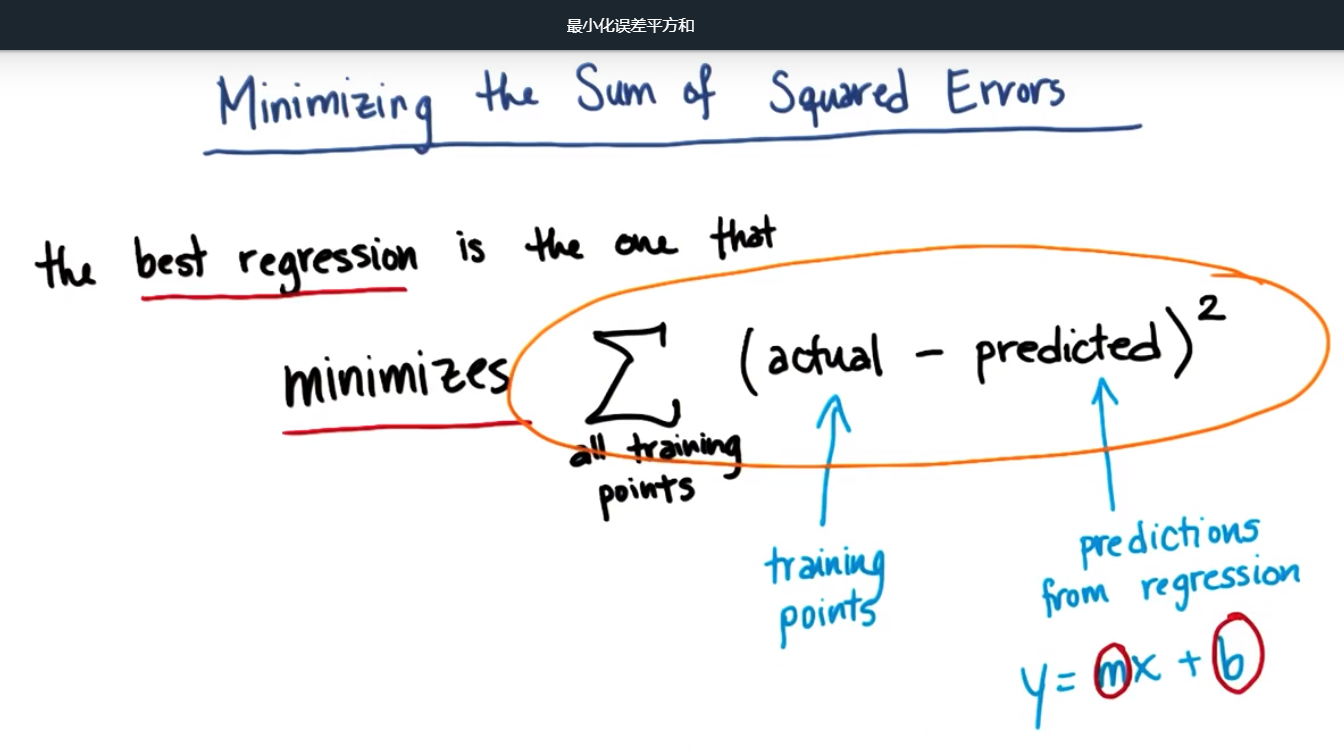 最小化误差平方和
Minimizing the Sum of Squared Errors
the best regression is the one that
minimizes ∑ (actual - predicted)²
all training
points
training
points
predictions
from regression
y = mx + b